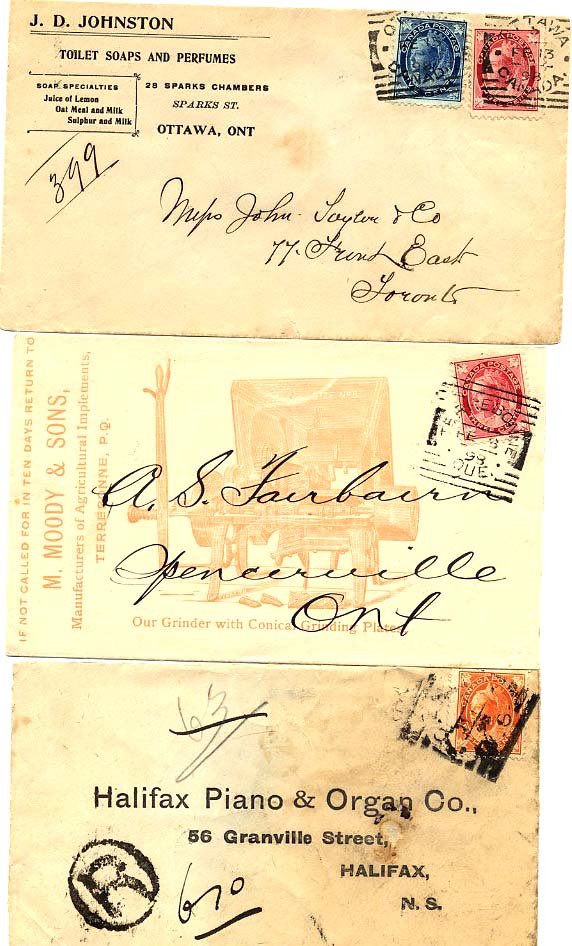 J. D. JOHNSTON
TOILET SOAPS AND PERFUMES
SOAP SPECIALTIES
Juice of Lemon
Oat Meal and Milk
Sulphur and Milk
28 SPARKS CHAMBERS
SPARKS ST.
OTTAWA, ONT
CANADA POSTAGE
CANADA POSTAGE
CANADA
399
Messrs John Taylor & Co
77 Front East
Toronto
IF NOT CALLED FOR IN TEN DAYS RETURN TO
M. MOODY & SONS,
Manufacturers of Agricultural Implements,
TERREBONNE, P.Q.
CANADA POSTAGE
98
QUE
A. S. Fairbairn
Spencerville
Ont
Our Grinder with Conical Grinding Plates
CANADA POSTAGE
63
Halifax Piano & Organ Co.,
56 Granville Street,
HALIFAX,
N. S.
R
610